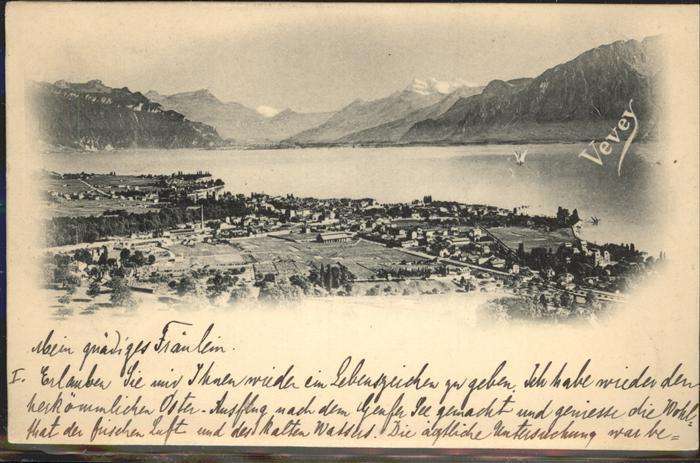 Vevey
Mein gnädiges Fräulein.
I. Erlauben Sie mir Ihnen wieder ein Lebenszeichen zu geben, Ich habe wieder den
herkömmlichen Oster-Ausflug nach dem Genfer See gemacht und geniesse die Wohl=
that der frischen Luft und des kalten Wassers. Die ärztliche Untersuchung war be=